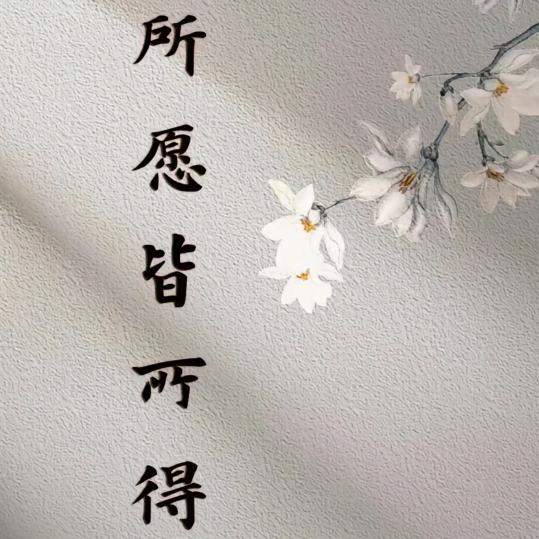 所愿皆所得